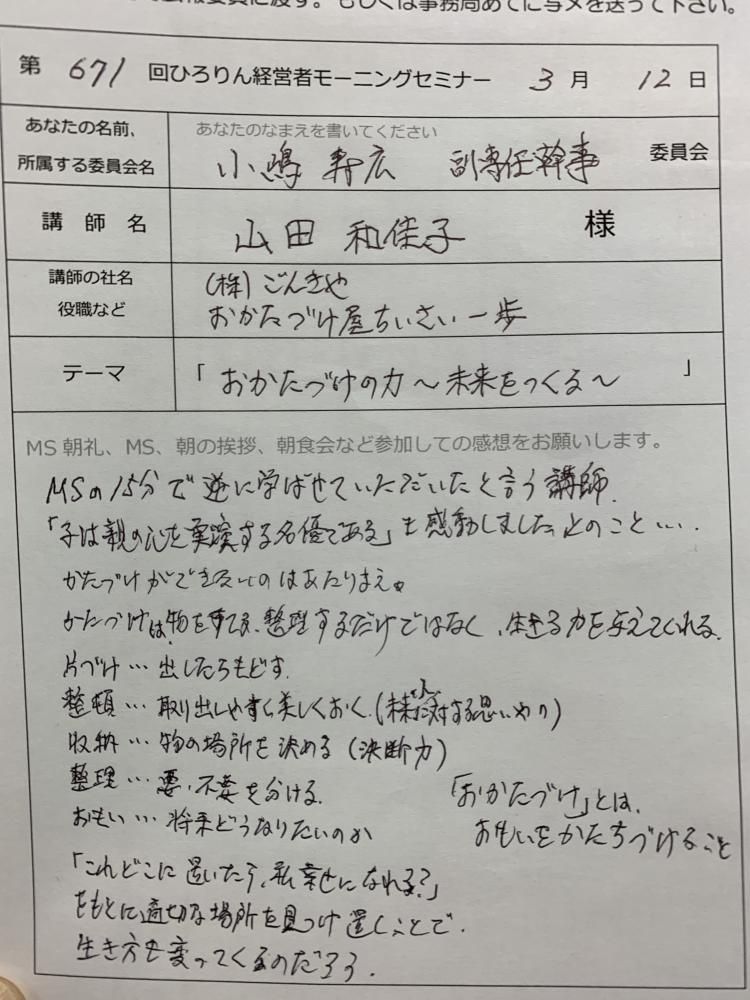 もしくは事務局あてに写メを送って下さい。
第 671 回ひろりん経営者モーニングセミナー 3 月 12 日
あなたの名前、
所属する委員会名
あなたのなまえを書いてください
小嶋 寿広 副専任幹事 委員会
講師名 山田 和佳子 様
講師の社名
役職など
(株)ごんきや
おかたづけ屋ちいさい一歩
テーマ 「おかたづけの力～未来をつくる～」
MS朝礼、MS、朝の挨拶、朝食会など参加しての感想をお願いします。
MSの15分で逆に学ばせていただいたと言う講師.
「子は親の心を実演する名優である」も感動しました。とのこと・・・.
かたづけができないのはあたりまえ。
かたづけは、物を すてる、整理するだけではなく、生きる力を与えてくれる.
片づけ・・・出したらもどす.
整頓・・・取り出しやすく美しくおく.(未来に対する思いやり)
収納・・・物の場所を決める(決断力)
整理・・・要、不要を分ける.
おもい・・・将来どうなりたいのか
「おかたづけ」とは、
おもいをかたちづけること
「これどこに置いたら、私幸せになれる?」
をもとに適切な場所を見つけ置くことで.
生き方も変ってくるのだろう.